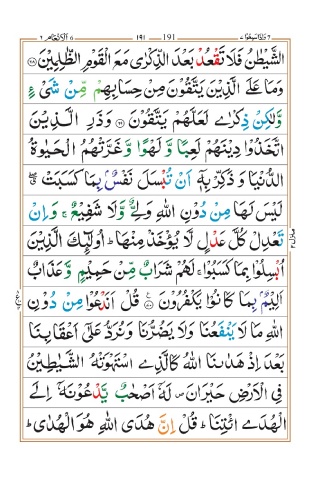 وَاِذَا سَمِعُوْا ٧ ١٩١ 191 اَلْاَنْعَام ٦
الشَّيْطٰنُ فَلَا تَقْعُدْ بَعْدَ الذِّكْرٰى مَعَ الْقَوْمِ الظّٰلِمِيْنَ ﴿٦٨﴾
وَمَا عَلَى الَّذِيْنَ يَتَّقُوْنَ مِنْ حِسَابِهِمْ مِّنْ شَىْءٍ
وَّلٰكِنْ ذِكْرٰى لَعَلَّهُمْ يَتَّقُوْنَ ﴿٦٩﴾ وَذَرِ الَّذِيْنَ
اتَّخَذُوْا دِيْنَهُمْ لَعِبًا وَّ لَهْوًا وَّ غَرَّتْهُمُ الْحَيٰوةُ
الدُّنْيَا وَ ذَكِّرْ بِهٖۤ اَنْ تُبْسَلَ نَفْسٌۢ بِمَا كَسَبَتْ ۖ
لَيْسَ لَهَا مِنْ دُوْنِ اللّٰهِ وَلِىٌّ وَّلَا شَفِيْعٌ ۚ وَاِنْ
تَعْدِلْ كُلَّ عَدْلٍ لَّا يُؤْخَذْ مِنْهَا ؕ اُولٰٓئِكَ الَّذِيْنَ
اُبْسِلُوْا بِمَا كَسَبُوْا ۚ لَهُمْ شَرَابٌ مِّنْ حَمِيْمٍ وَّ عَذَابٌ
اَلِيْمٌۢ بِمَا كَانُوْا يَكْفُرُوْنَ ﴿٧٠﴾ قُلْ اَنَدْعُوْا مِنْ دُوْنِ
اللّٰهِ مَا لَا يَنْفَعُنَا وَلَا يَضُرُّنَا وَنُرَدُّ عَلٰٓى اَعْقَابِنَا
بَعْدَ اِذْ هَدٰٮنَا اللّٰهُ كَالَّذِى اسْتَهْوَتْهُ الشَّيٰطِيْنُ
فِى الْاَرْضِ حَيْرَانَ ۪ لَهٗۤ اَصْحٰبٌ يَّدْعُوْنَهٗۤ اِلَى
الْهُدَى ائْتِنَا ؕ قُلْ اِنَّ هُدَى اللّٰهِ هُوَ الْهُدٰى ؕ